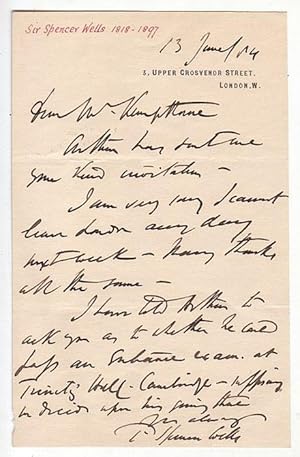 Sir Spencer Wells 1818-1897
13 June/84
3, UPPER GROSVENOR STREET.
LONDON, W.
Dear Mr Kempthorne
Arthur has sent me
your kind invitation –
I am very sorry I cannot
leave London any day
next week – Many thanks
all the same –
I have told Arthur to
ask you as to whether he could
pass an Entrance exam. at
Trinity Hall – Cambridge – supposing
we decide upon his going there
always
T. Spencer Wells